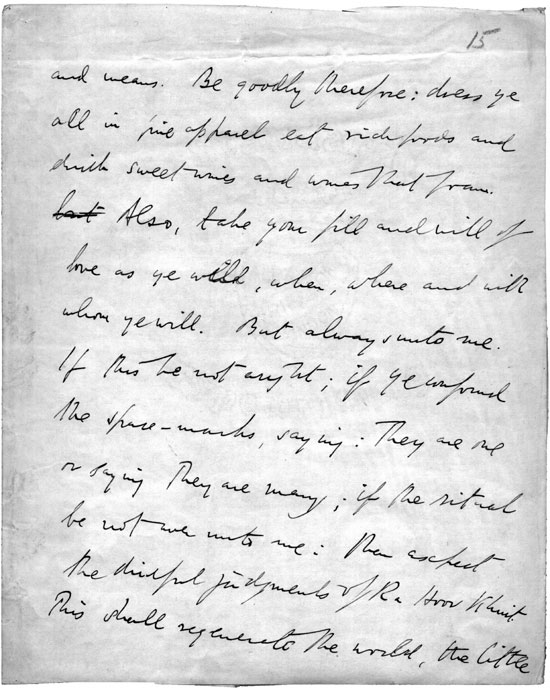 15
and means. Be goodly therefore: dress ye
all in fine apparel eat rich foods and
drink sweet wines and wines that foam.
but Also, take your fill and will of
love as ye will, when, where and with
whom ye will. But always unto me.
If this be not aright; if ye confound
the space-marks, saying: They are one
or saying They are many; if the ritual
be not ever unto me: then expect
the direful judgments of Ra Hoor Khuit.
This shall regenerate the world, the little